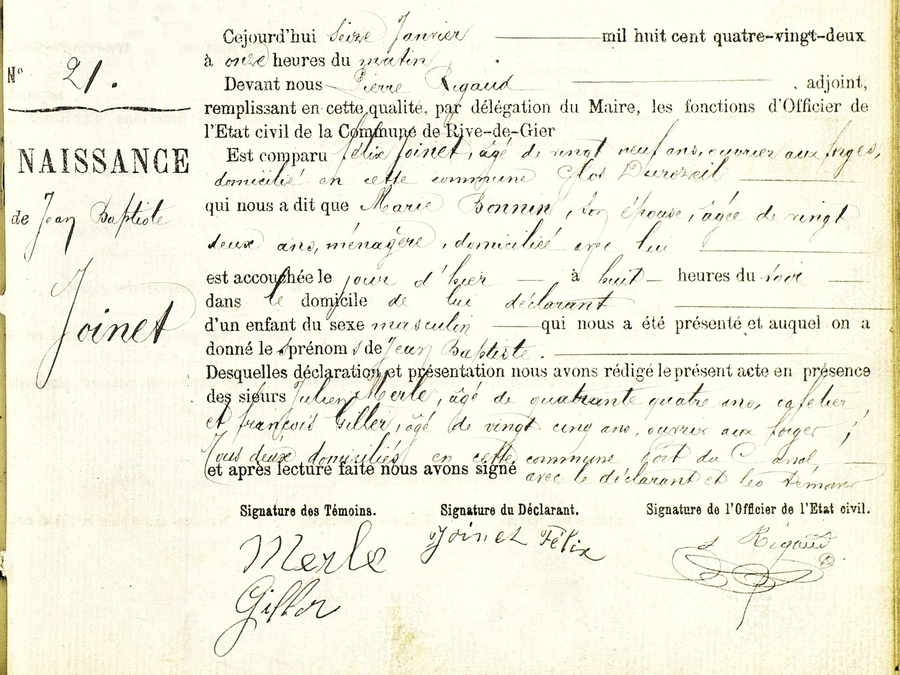 N° 21.
NAISSANCE
de Jean Baptiste
Joinet
Cejourd'hui seize Janvier mil huit cent quatre-vingt-deux
à onze heures du matin
Devant nous Pierre Rigaud, adjoint,
remplissant en cette qualité, par délégation du Maire, les fonctions d'Officier de
l'Etat civil de la Commune de Rive-de-Gier
Est comparu félix Joinet, âgé de vingt neuf ans, ouvrier aux forges,
domicilié en cette commune Clos Durozeil
qui nous a dit que Marie Bonnin, son épouse, âgée de vingt
deux ans, ménagère, domiciliée avec lui
est accouchée le jour d'hier à huit heures du soir
dans le domicile de lui déclarant
d'un enfant du sexe masculin qui nous a été présenté et auquel on a
donné les prénoms de Jean Baptiste.
Desquelles déclaration et présentation nous avons rédigé le présent acte en présence
des sieurs Julien Merle, âgé de quarante quatre ans, cafetier
et françois Giller, âgé de vingt cinq ans, ouvrier aux forges,
tous deux domiciliés en cette commune port du Canal
et après lecture faite nous avons signé avec le déclarant et les témoins
Signature des Témoins. Signature du Déclarant. Signature de l'Officier de l'Etat civil.
Merle Joinet Félix Rigaud
Giller